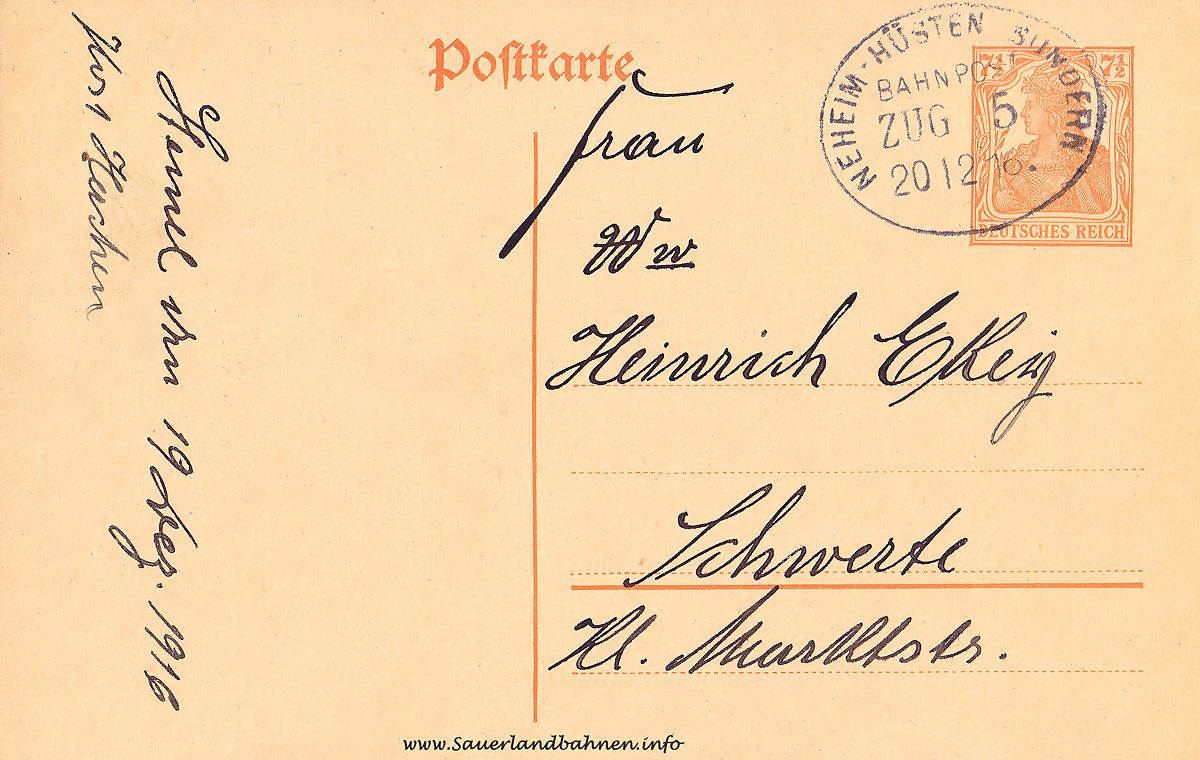 Postkarte
NEHEIM-HÜSTEN SUNDERN
BAHNPOST
ZUG 5
20 12 16.
7½ 7½
DEUTSCHES REICH
Frau
Ww
Heinrich
Schwerte
Kl. Marktstr.
19 Dez. 1916
Post Hachen
www.Sauerlandbahnen.info